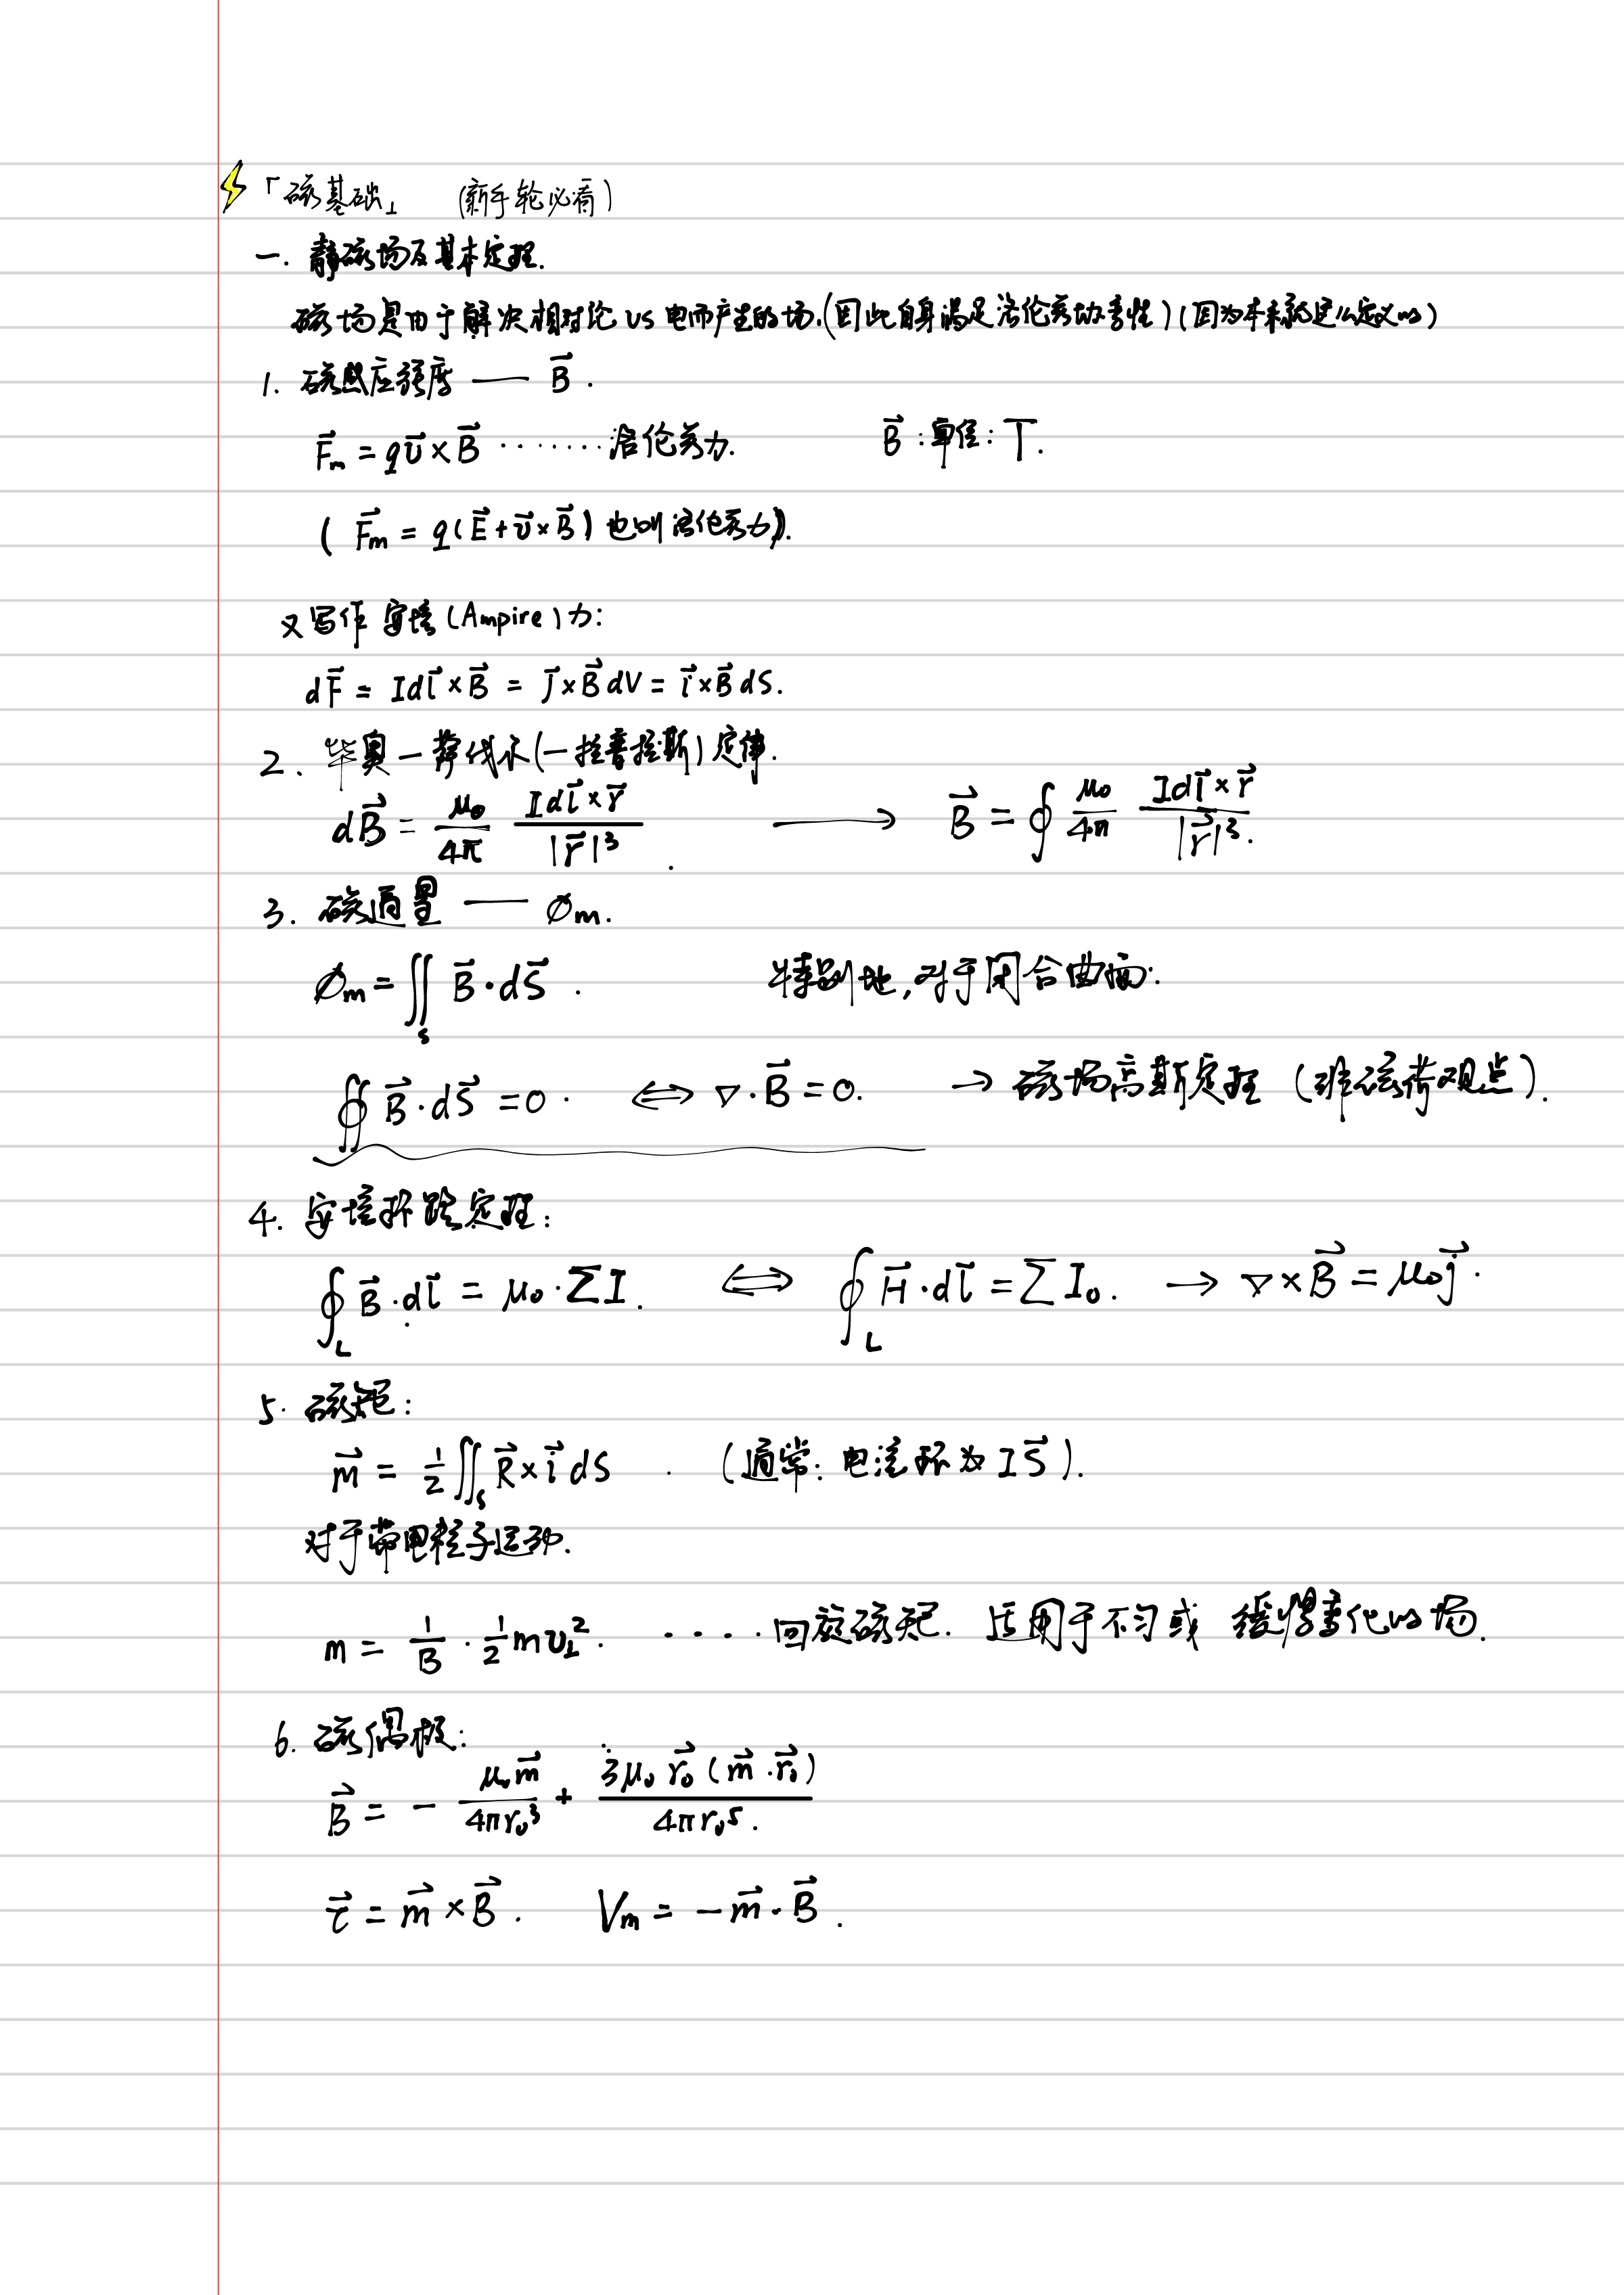 「磁基础」 (新手轮必看)
一. 静磁场及基本定理.
磁场是由于解决相对论 vs 电而产生的场.(因此自身满足洛伦兹协变性)(因为本来就这么定义的)
1. 磁感应强度 —— \vec{B}.
\vec{F}_m = q\vec{v}×\vec{B} ········洛伦兹力. \vec{B}:单位:T.
( \vec{F_m} = q(\vec{E}+\vec{v}×\vec{B}) 也叫洛伦兹力).
又写作 安培(Ampire)力:
d\vec{F} = Id\vec{l}×\vec{B} = \vec{j}×\vec{B}dV = \vec{i}×\vec{B}dS.
2. 毕奥一萨伐尔(一拉普拉斯)定律.
d\vec{B} = \frac{μ_0}{4π} \frac{Id\vec{l}×\vec{r}}{|\vec{r}|^3}. ⟶ \vec{B} = ∮ \frac{μ_0}{4π} \frac{Id\vec{l}×\vec{r}}{|\vec{r}|^3}.
3. 磁通量 —— Ø_m.
Ø_m = ∬_S \vec{B}·d\vec{S}. 特别地,对于闭合曲面:
∯ \vec{B}·d\vec{S} = 0. ⟺ ∇·\vec{B} = 0. → 磁场高斯定理 (非磁荷观点).
4. 安培环路定理:
∮_L \vec{B}·d\vec{l} = μ_0·ΣI. ⟺ ∮_L \vec{H}·d\vec{l} = ΣI_0. → ∇×\vec{B} = μ_0\vec{j}.
5. 磁矩:
\vec{m} = \frac{1}{2}∬_S \vec{R}×\vec{i}dS. (通常:电流环为 I\vec{S}).
对于带电粒子运动.
m = \frac{1}{B}·\frac{1}{2}mv_⊥^2. ·····回旋磁矩. 适用于不匀或 缓慢变化的场.
6. 磁偶极:
\vec{B} = -\frac{μ_0\vec{m}}{4πr_0^3} + \frac{3μ_0\vec{r_0}(\vec{m}·\vec{r_0})}{4πr_0^5}.
\vec{τ} = \vec{m}×\vec{B}. V_m = -\vec{m}·\vec{B}.